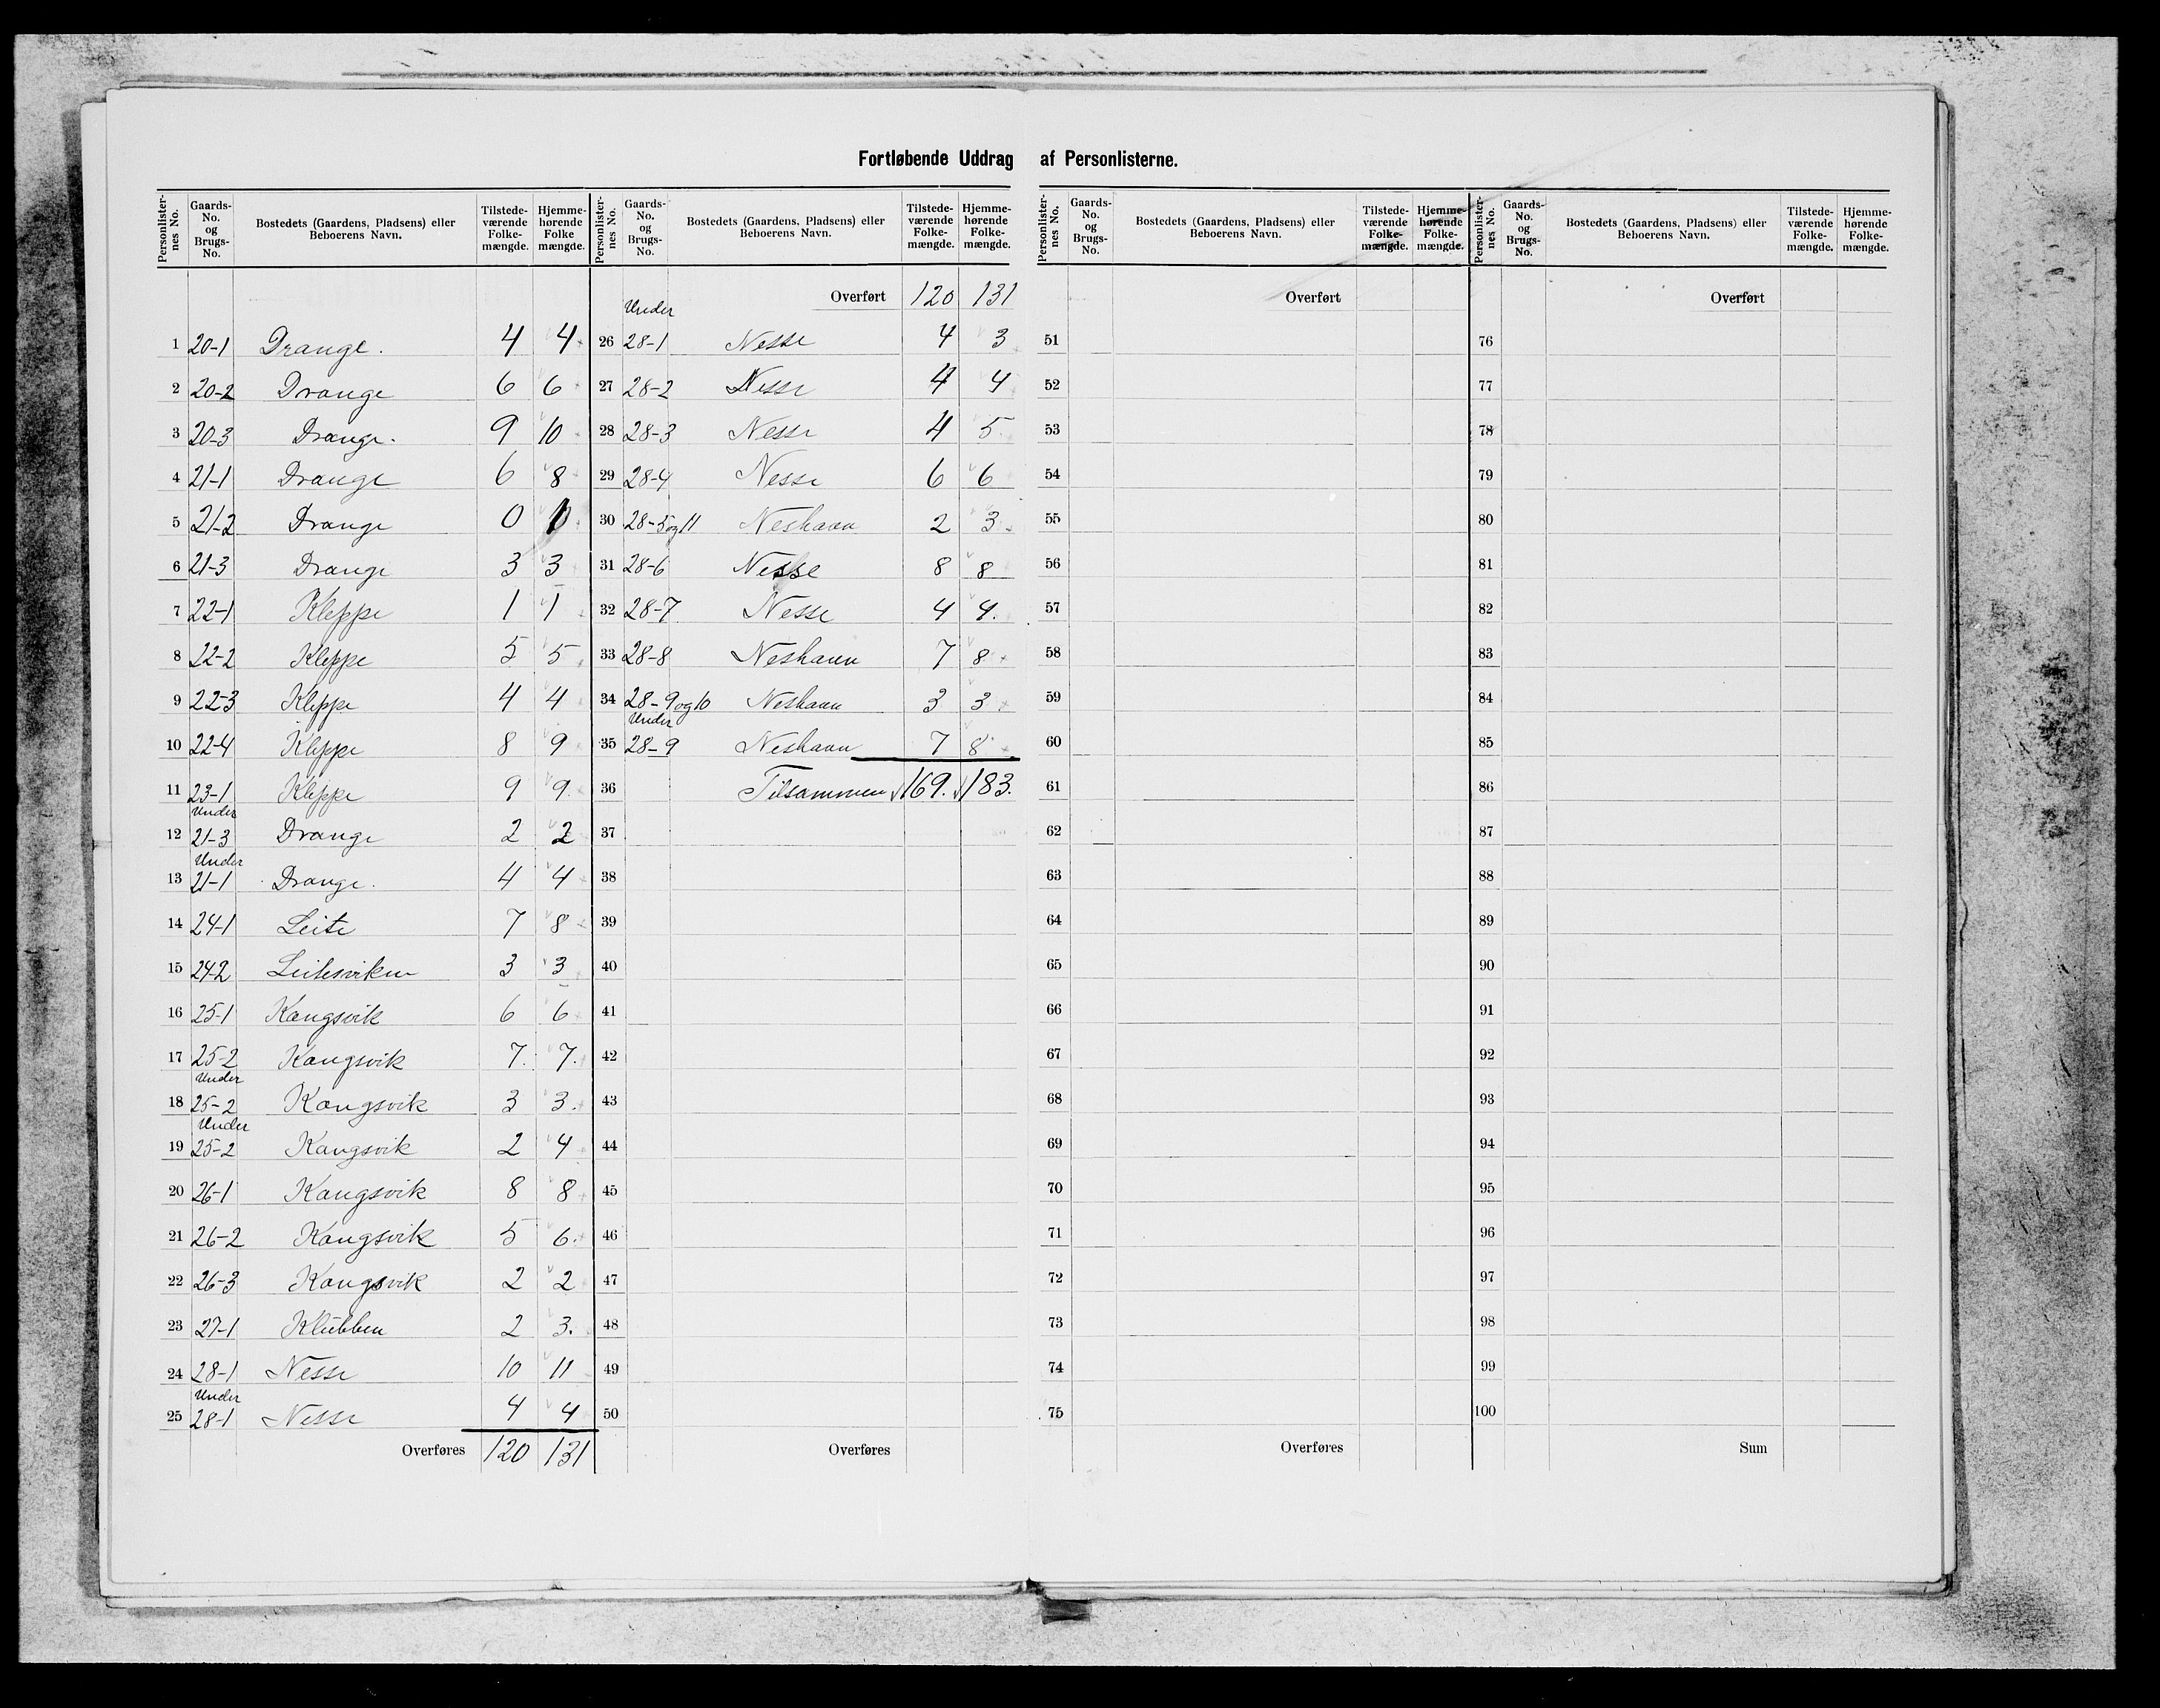 Fortløbende Uddrag af Personlisterne.
Personlister-nes No. | Gaards-No. og Brugs-No. | Bostedets (Gaardens, Pladsens) eller Beboerens Navn. | Tilstede-værende Folke-mængde. | Hjemme-hørende Folke mængde.
1 20-1 Drange. 4 4
2 20-2 Drange 6 6
3 20-3 Drange. 9 10
4 21-1 Drange 6 8
5 21-2 Drange 0 0
6 21-3 Drange 3 3
7 22-1 Kleppe 1 1
8 22-2 Kleppe 5 5
9 22-3 Kleppe 4 4
10 22-4 Kleppe 8 9
11 23-1 Kleppe 9 9
12 Under 21-3 Drange 2 2
13 Under 21-1 Drange. 4 4
14 24-1 Leite 7 8
15 24-2 Leitesviken 3 3
16 25-1 Kangsvik 6 6
17 25-2 Kangsvik 7. 7.
18 Under 25-2 Kangsvik 3 3.
19 Under 25-2 Kangsvik 2 4
20 26-1 Kangsvik 8 8
21 26-2 Kangsvik 5 6.
22 26-3 Kangsvik 2 2
23 27-1 Klubben 2 3.
24 28-1 Nesse 10 11
25 Under 28-1 Nesse 4 4
Overføres 120 131
Personlister-nes No. | Gaards-No. og Brugs-No. | Bostedets (Gaardens, Pladsens) eller Beboerens Navn. | Tilstede-værende Folke-mængde. | Hjemme-hørende Folke-mængde.
Overført 120 131
26 Under 28-1 Nesse 4 3
27 28-2 Nesse 4 4
28 28-3 Nesse 4 5
29 28-4 Nesse 6 6
30 28-5 og 11 Neshavn 2 3
31 28-6 Nesse 8 8
32 28-7 Nesse 4 4.
33 28-8 Neshavn 7 8
34 28-9 og 10 Neshavn 3 3
35 Under 28-9 Neshavn 7 8
36 Tilsammen 169. 183.
37
38
39
40
41
42
43
44
45
46
47
48
49
50
Overføres
Personlister-nes No. | Gaards-No. og Brugs-No. | Bostedets (Gaardens, Pladsens) eller Beboerens Navn. | Tilstede-værende Folke-mængde. | Hjemme-hørende Folke-mængde.
Overført
51
52
53
54
55
56
57
58
59
60
61
62
63
64
65
66
67
68
69
70
71
72
73
74
75
Overføres
Personlister-nes No. | Gaards-No. og Brugs-No. | Bostedets (Gaardens, Pladsens) eller Beboerens Navn. | Tilstede-værende Folke-mængde. | Hjemme-hørende Folke-mængde.
Overført
76
77
78
79
80
81
82
83
84
85
86
87
88
89
90
91
92
93
94
95
96
97
98
99
100
Sum